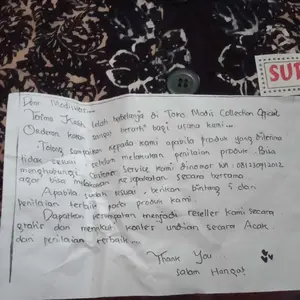 Dear Modiners...
Terima Kasih telah berbelanja di Toko Modis Collection Official
Orderan kakak sangat berarti bagi usaha kami...
Tolong sampaikan kepada kami apabila produk yang diterima
tidak sesuai, sebelum melakukan penilaian produk. Bisa
menghubungi Customer Service kami dinomor WA :
agar bisa melakukan kesepakatan secara bersama
Apabila sudah sesuai, berikan bintang 5 dan
penilaian terbaik pada produk kami.
Dapatkan kesempatan menjadi reseller kami secara
gratis dan mengikuti kontes undian secara Acak
dan penilaian terbaik...
Thank You
Salam Hangat
SUP